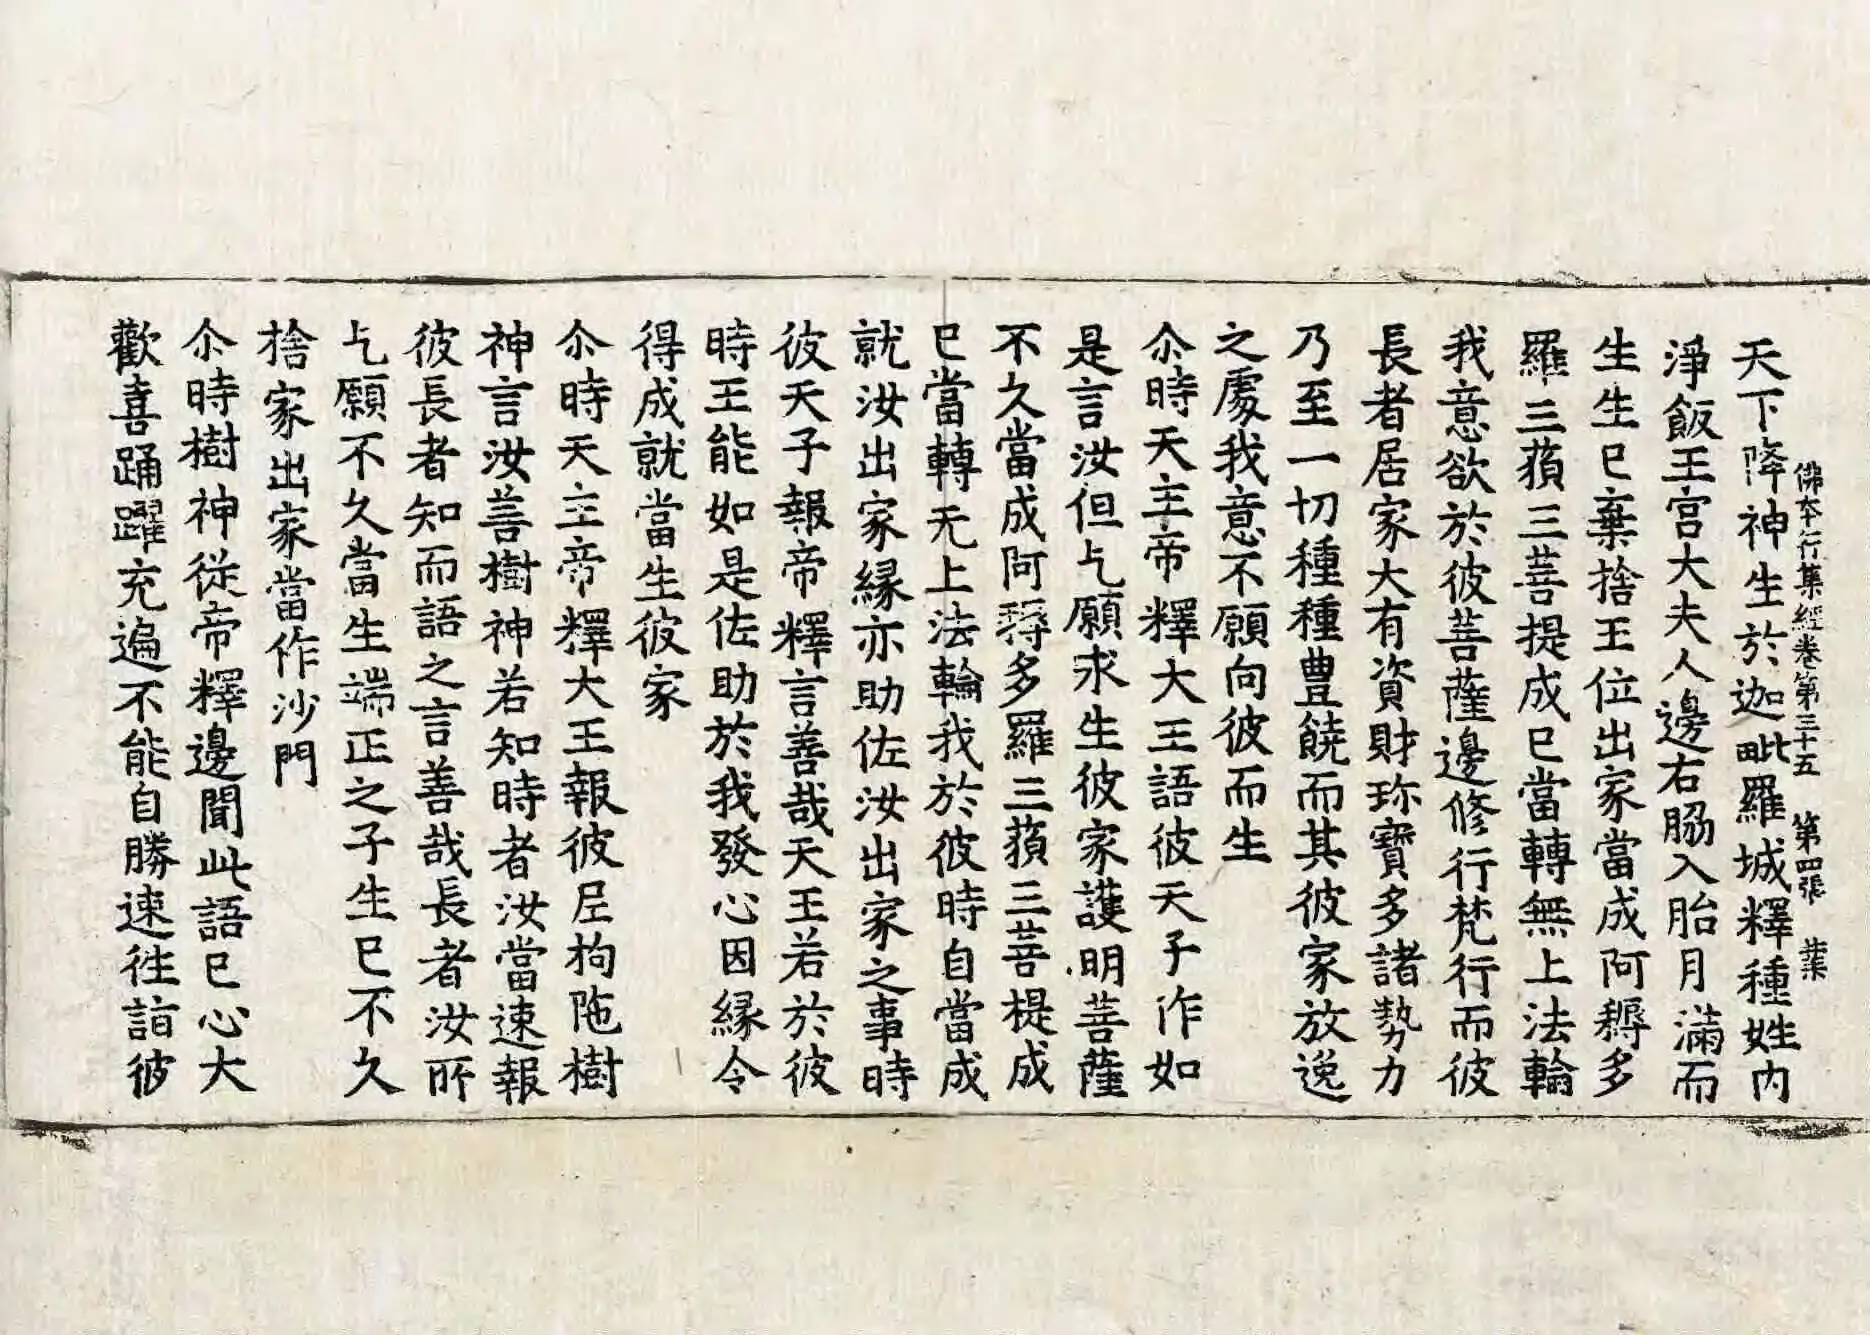 佛本行集經卷第三十五　第四張　業
天下降神生於迦毗羅城釋種姓内
淨飯王宮大夫人邊右脇入胎月滿而
生生已棄捨王位出家當成阿耨多
羅三藐三菩提成已當轉無上法輪
我意欲於彼菩薩邊修行梵行而彼
長者居家大有資財珎寶多諸勢力
乃至一切種種豊饒而其彼家放逸
之處我意不願向彼而生
尒時天主帝釋大王語彼天子作如
是言汝但乞願求生彼家護明菩薩
不久當成阿耨多羅三藐三菩提成
已當轉无上法輪我於彼時自當成
就汝出家縁亦助佐汝出家之事時
彼天子報帝釋言善哉天王若於彼
時王能如是佐助於我發心因縁令
得成就當生彼家
尒時天主帝釋大王報彼尼拘陁樹
神言汝善樹神若知時者汝當速報
彼長者知而語之言善哉長者汝所
乞願不久當生端正之子生已不久
捨家出家當作沙門
尒時樹神從帝釋邊聞此語已心大
歡喜踊躍充遍不能自勝速往詣彼